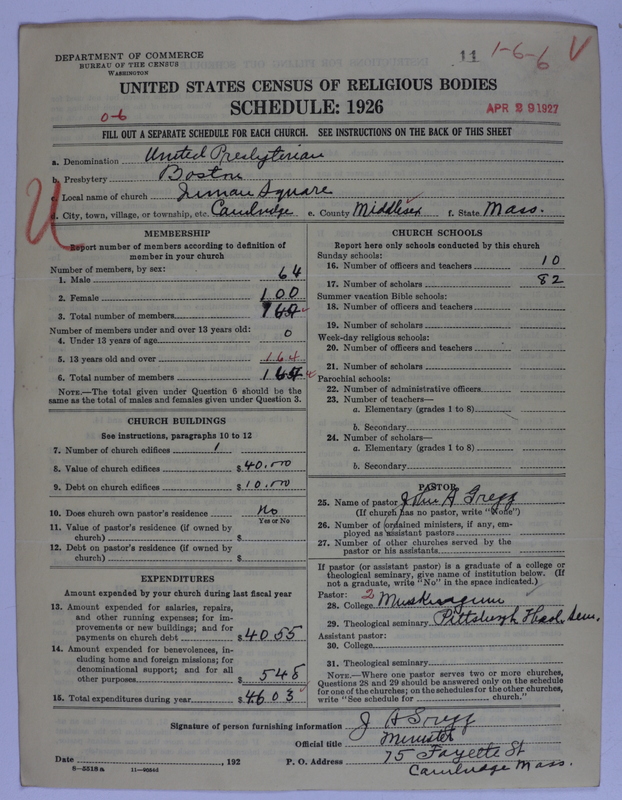 DEPARTMENT OF COMMERCE
BUREAU OF THE CENSUS
WASHINGTON
11 1-6-6 V
UNITED STATES CENSUS OF RELIGIOUS BODIES
SCHEDULE: 1926
0-6
APR 29 1927
FILL OUT A SEPARATE SCHEDULE FOR EACH CHURCH. SEE INSTRUCTIONS ON THE BACK OF THIS SHEET
U
a. Denomination United Presbyterian
b. Presbytery Boston
c. Local name of church Inman Square
d. City, town, village, or township, etc. Cambridge e. County Middlesex f. State Mass.
MEMBERSHIP
Report number of members according to definition of
member in your church
Number of members, by sex:
1. Male 64
2. Female 100
3. Total number of members 164
Number of members under and over 13 years old:
4. Under 13 years of age 0
5. 13 years old and over 164
6. Total number of members 164
NOTE.—The total given under Question 6 should be the
same as the total of males and females given under Question 3.
CHURCH BUILDINGS
See instructions, paragraphs 10 to 12
7. Number of church edifices 1
8. Value of church edifices $40,000
9. Debt on church edifices $10,000
10. Does church own pastor's residence No
Yes or No
11. Value of pastor's residence (if owned by
church) $
12. Debt on pastor's residence (if owned by
church) $
EXPENDITURES
Amount expended by your church during last fiscal year
13. Amount expended for salaries, repairs,
and other running expenses; for im-
provements or new buildings; and for
payments on church debt $4055
14. Amount expended for benevolences, in-
cluding home and foreign missions; for
denominational support; and for all
other purposes $548
15. Total expenditures during year $4603
CHURCH SCHOOLS
Report here only schools conducted by this church
Sunday schools:
16. Number of officers and teachers 10
17. Number of scholars 82
Summer vacation Bible schools:
18. Number of officers and teachers
19. Number of scholars
Week-day religious schools:
20. Number of officers and teachers
21. Number of scholars
Parochial schools:
22. Number of administrative officers
23. Number of teachers—
a. Elementary (grades 1 to 8)
b. Secondary
24. Number of scholars—
a. Elementary (grades 1 to 8)
b. Secondary
PASTOR
25. Name of pastor John A Gregg
(If church has no pastor, write "None")
26. Number of ordained ministers, if any, em-
ployed as assistant pastors
27. Number of other churches served by the
pastor or his assistants
If pastor (or assistant pastor) is a graduate of a college or
theological seminary, give name of institution below. (If
not a graduate, write "No" in the space indicated.)
Pastor: 2
28. College Muskingum
29. Theological seminary Pittsburgh Theol. Sem.
Assistant pastor:
30. College
31. Theological seminary
NOTE.—Where one pastor serves two or more churches,
Questions 28 and 29 should be answered only on the schedule
for one of the churches; on the schedules for the other churches,
write "See schedule for church."
Signature of person furnishing information J A Gregg
Official title Minister
Date , 192 P. O. Address 75 Fayette St
Cambridge Mass.
8—5518 a 11—9084d